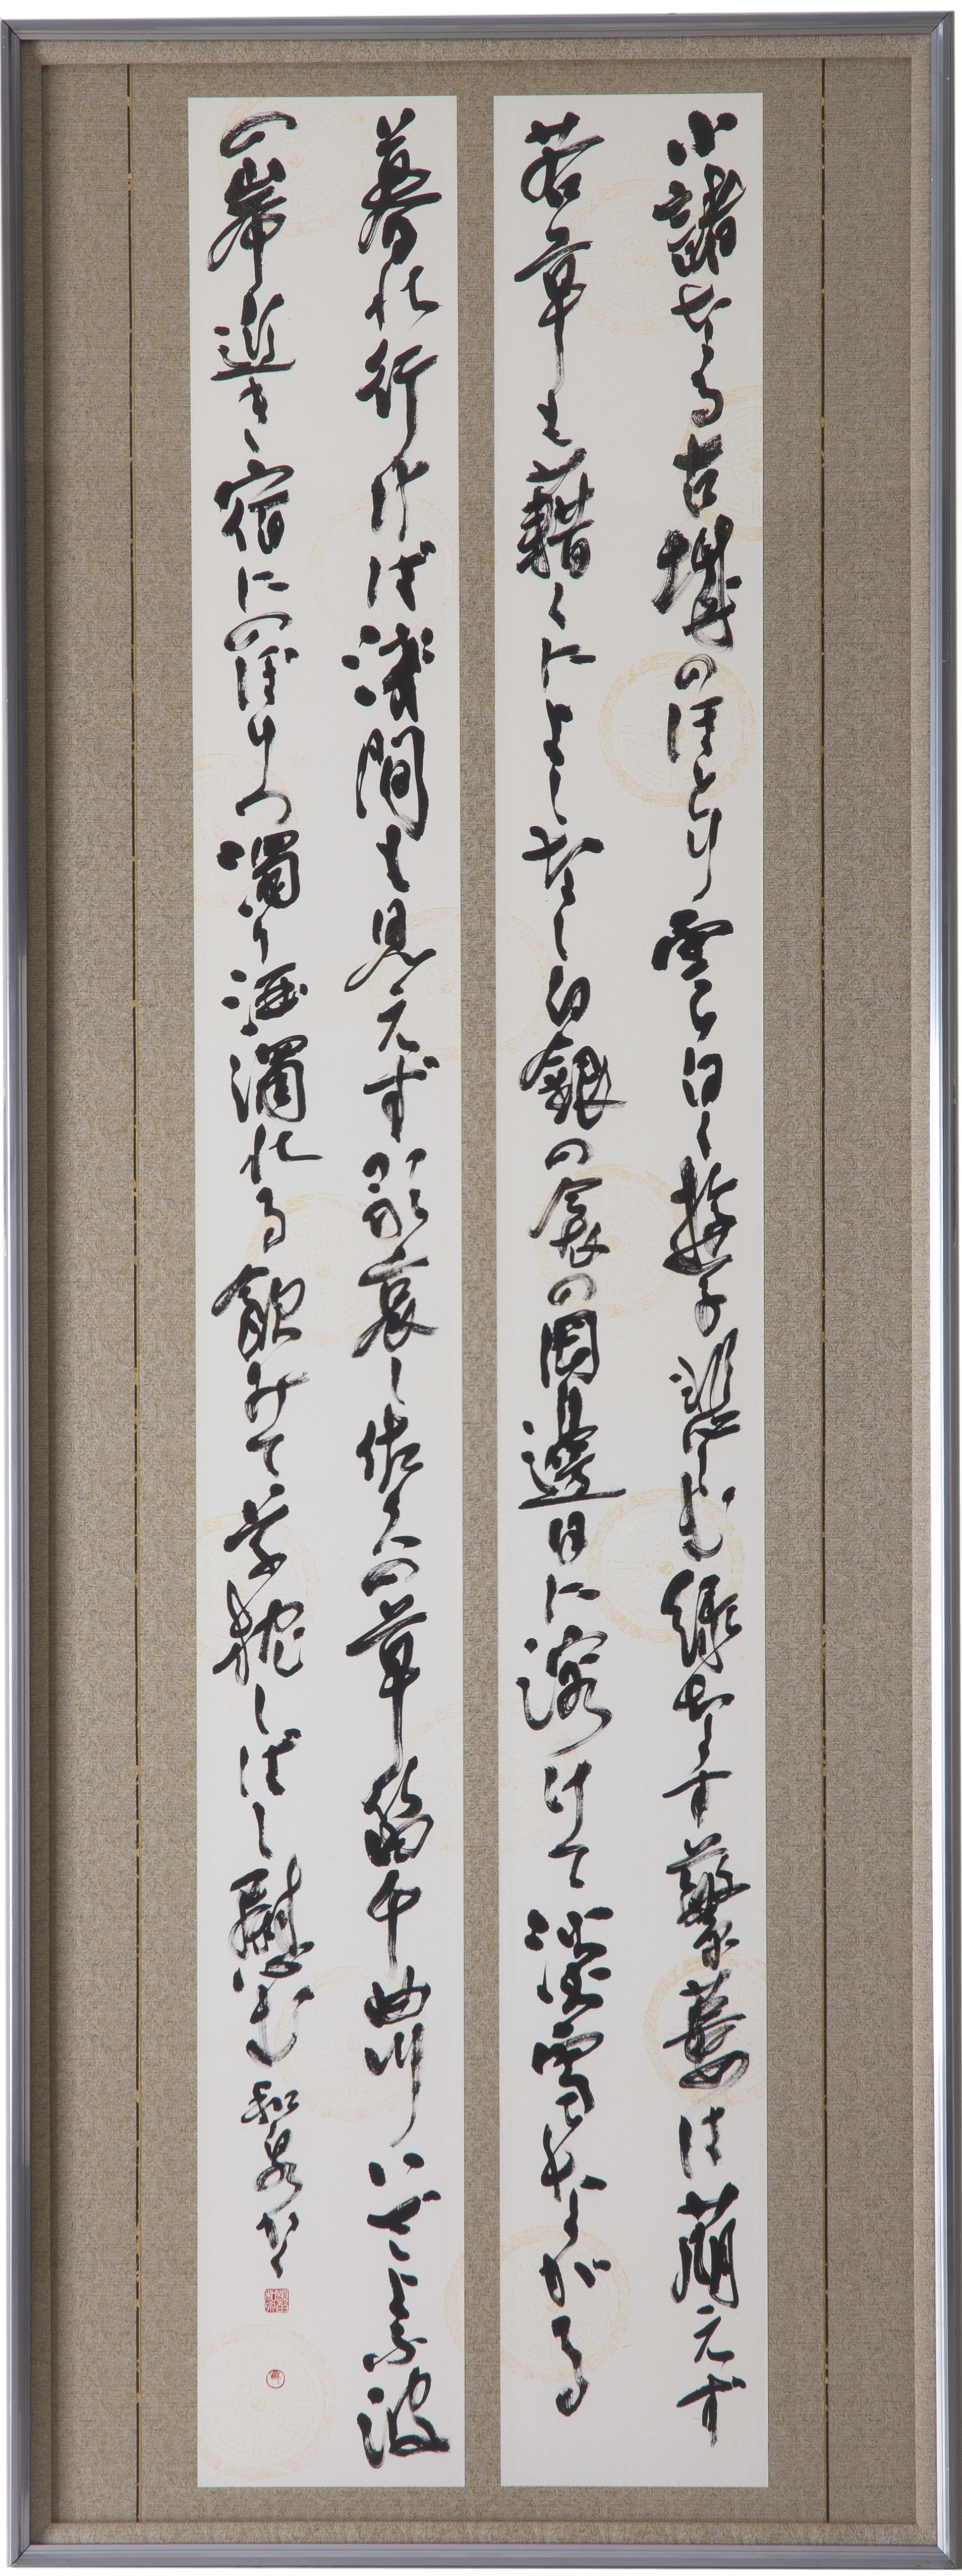 小諸なる古城のほとり雲白く遊子悲しむ緑なす蘩蔞は萌えず
若草も藉くによしなし白銀の衾の岡邊日に溶けて淡雪ながる
暮れ行けば浅間も見えず歌哀し佐久の草笛千曲川いざよふ波
の岸近き宿にのぼりつ濁り酒濁れる飲みて草枕しばし慰む 和泉かく